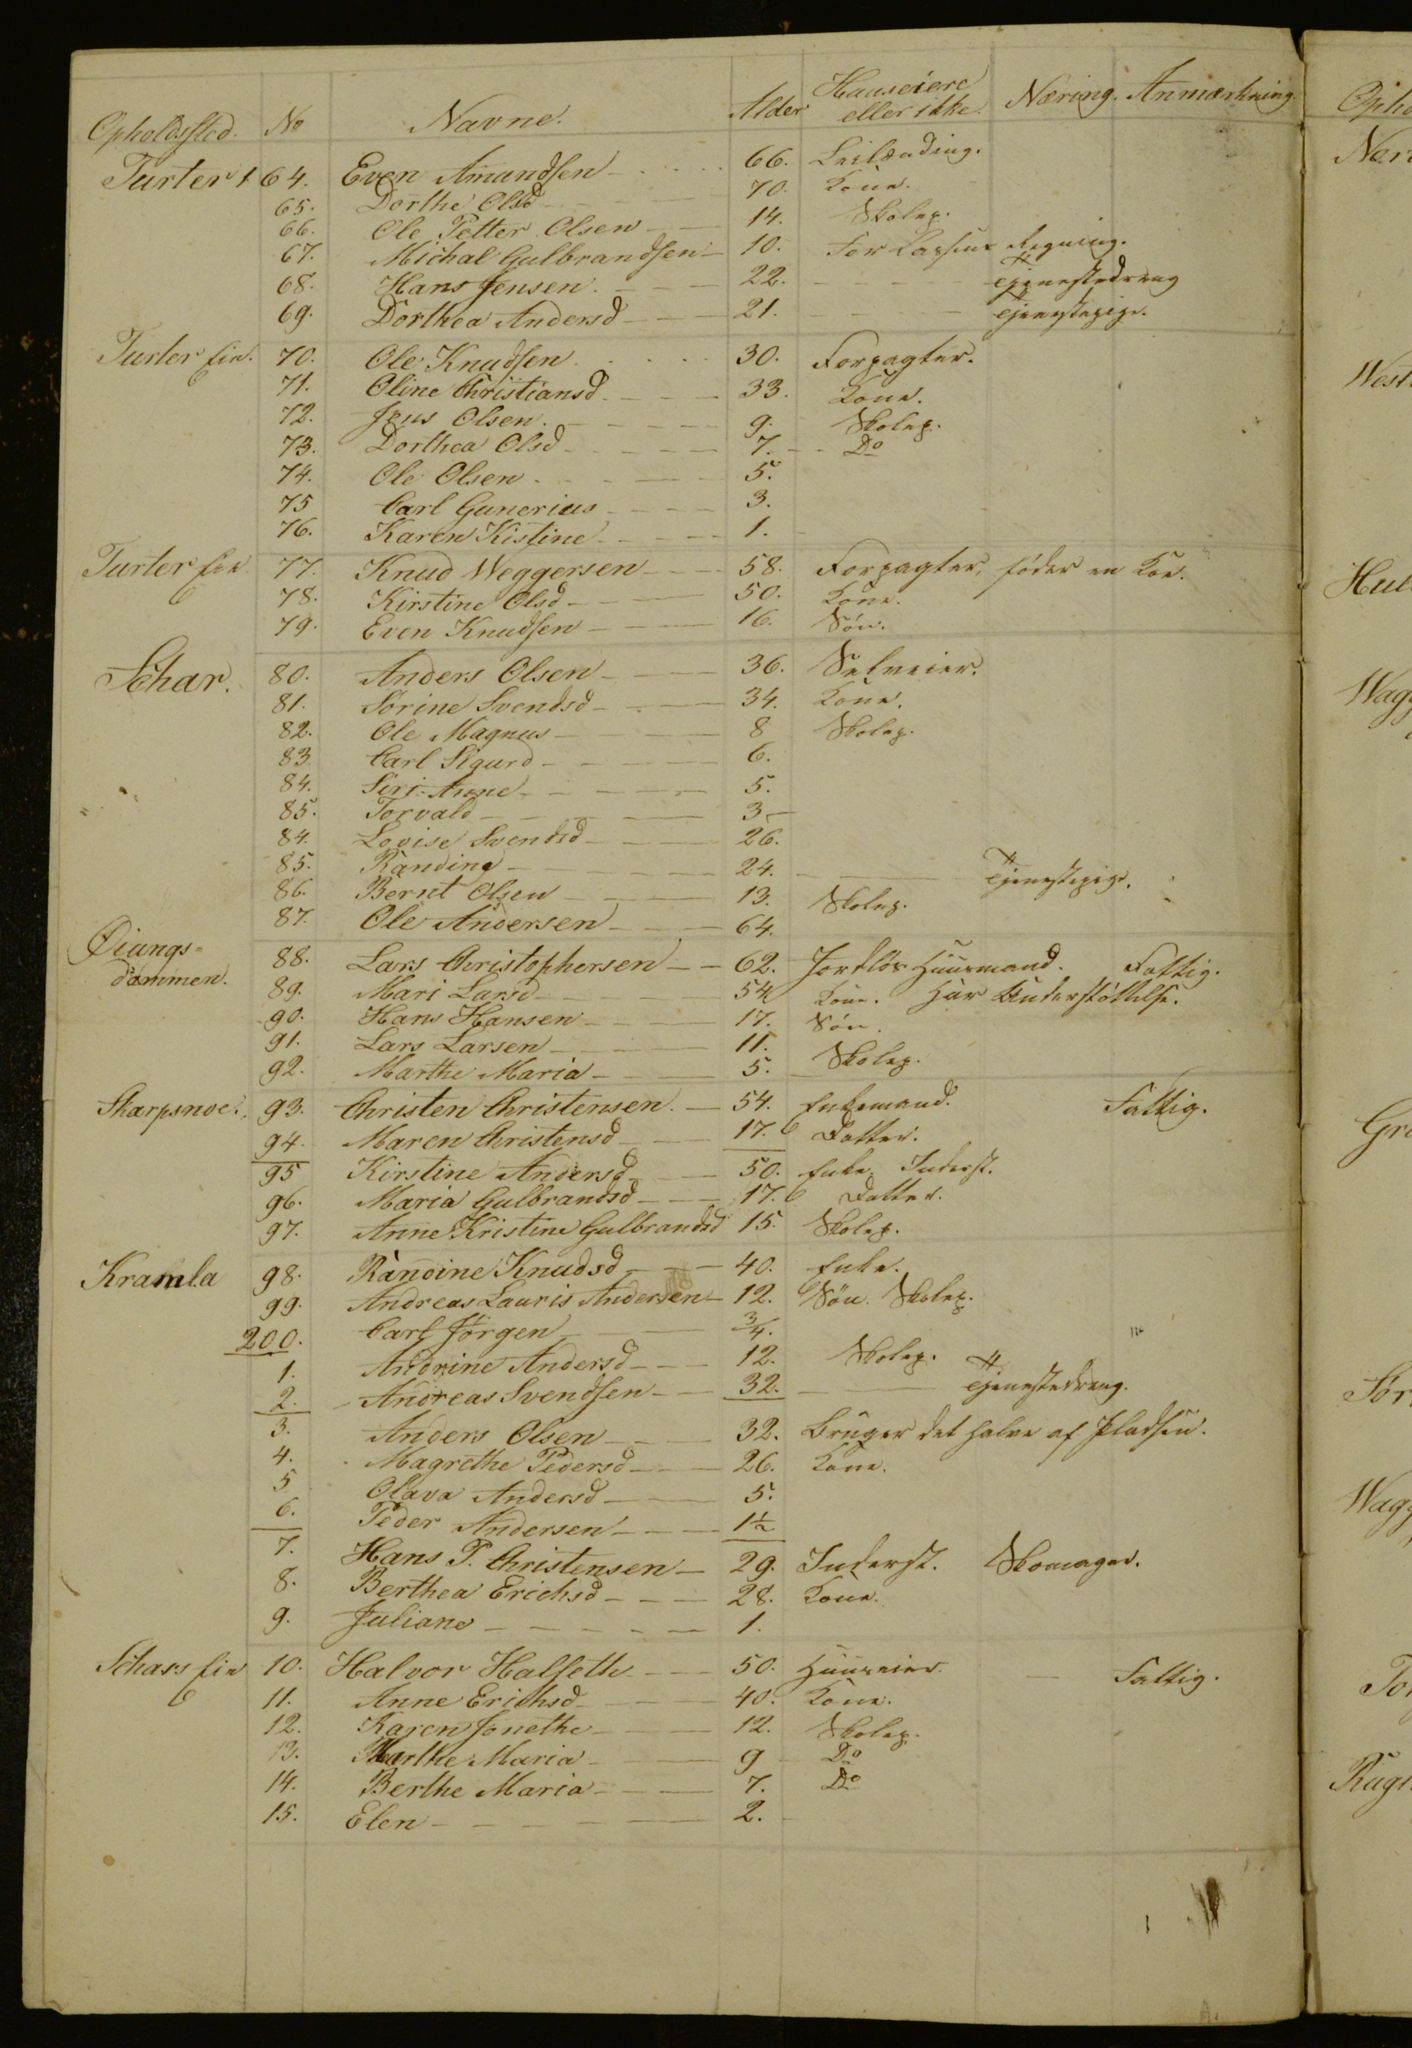 Opholdssted. No Navne. Alder Huuseiere eller ikke. Næring. Anmærkning
Turter 1 64. Even Amandsen 66. Leilænding.
65. Dorthe Olsd 70. Kone.
66. Ole Petter Olsen 14. Skolep.
67. Michal Gulbrandsen 10. For Regning.
68. Hans Jensen. 22. Tjenestedreng
69. Dorthea Andersd 21. Tjenestepige.
Turter Eie. 70. Ole Knudsen 30. Forpagter.
71. Oline Christiansd. 33. Kone.
72. Jens Olsen. 9. Skolep.
73. Dorthea Olsd 7. Do
74. Ole Olsen 5.
75 Carl Gunerius 3.
76. Karen Kistine 1.
Turter Eie 77. Knud Weggersen 58. Forpagter, føder en Koe.
78. Kirstine Olsd 50. Kone.
79. Even Knudsen 16. Søn.
Schar. 80. Anders Olsen 36. Selveier.
81. Sorine Svendsd 34. Kone.
82. Ole Magnus 8 Skolep.
83. Carl Sigurd 6.
84. Siri Anne 5.
85. Torvald 3
84. Lovise Svendsd 26.
85. Randine 24. Tjenestepige.
86. Bernt Olsen 13. Skolep.
87. Ole Andersen 64.
Øiangs= 88. Lars Christophersen 62. Jordløs Huusmand. Fattig.
dammen. 89. Mari Larsd 54 Kone. Har Understøttelse.
90. Hans Hansen 17. Søn.
91. Lars Larsen 11. Skolep.
92. Marthe Maria 5.
Skarpsnoe. 93. Christen Christensen. 54. Enkemand. Fattig.
94. Maren Christensd 17. Datter.
95 Kirstine Andersd 50. Enke. Inderst.
96. Maria Gulbrandsd 17. Datter.
97. Anne Kristine Gulbrandsd 15. Skolep.
Kramla 98. Randine Knudsd 40. Enke.
99. Andreas Lauris Andersen 12. Søn. Skolep.
200. Carl Jørgen 3/4.
1. Andrine Andersd 12. Skolep.
2. Andreas Svendsen 32. Tjenestedreng.
3. Anders Olsen 32. Bruger det halve af Pladsen.
4. Magrethe Pedersd 26. Kone.
5 Olava Andersd 5.
6. Peder Andersen 1½
7. Hans P. Christensen 29. Inderst. Skomager.
8. Berthea Erichsd 28. Kone.
9. Juliane 1.
Schars Eie 10. Halvor Halseth 50. Huuseier. Fattig.
11. Anne Erichsd 40. Kone.
12. Karen Jonethe 12. Skolep.
13. Marthe Maria 9 Do
14. Berthe Maria 7. Do
15. Elen 2.